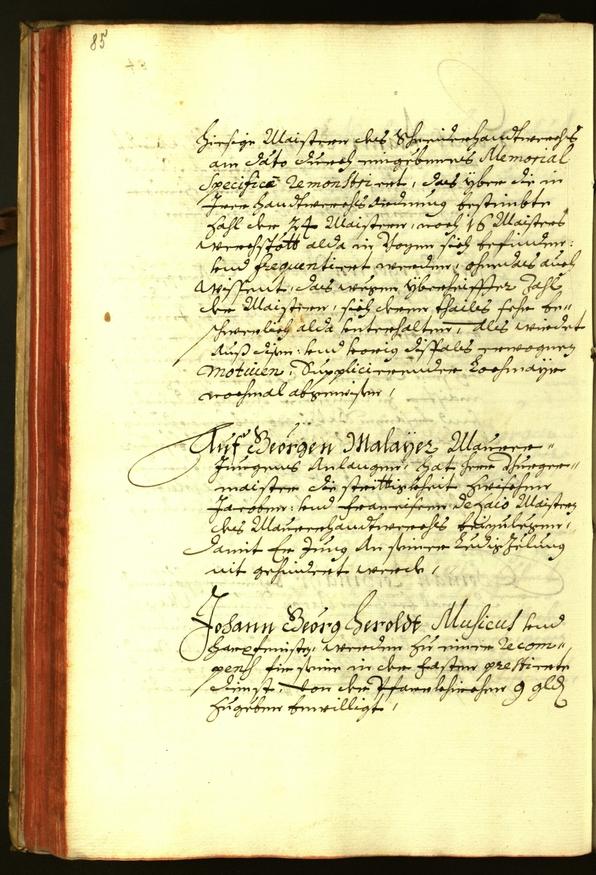 85
hiesige Maistern des Schneiderhandtwerchs
am dato durch eingebenes Memorial
Specificè remonstriert, das yber die in
Irer Handtwerchsordnung bestimbte
Zahl der 24 Maistern, noch 16 Maisters
Werchstött alda in Bozen sich befinden:
und frequentiert werden, ohne das auch
der Maistern, sich deren thails sehr be-
schwerlich alda unterhalten, Als würdet
Auß disen: und vorig disfals erwognen
motiven, Supplicierender Kochmayr
nochmal abgewisen,
Auf Geörgen Malayer Maurer-
Jungens Anlangen, hat Herr Burger-
maister die strittigkheit zwischen
Jacoben: und Francisen Delaio Maistern
des Maurerhandtwerchs beyzulegen,
damit Er Jung an seiner Ledigzelung
nit gehindert werde,
Johann Geörg Heroldt Musicus und
Harpfenist, werden zu einer recom-
pens für seine in der Fasten prestierte
dienst, von der Pfarrkhirchen 9 gld
zugeben bewilligt,